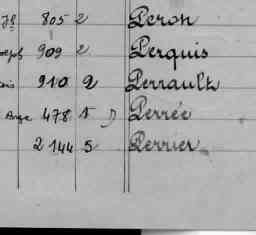 805 2 Peron
909 2 Perquis
910 2 Perrault
Ange 478 5 Perrée
2144 5 Perrier